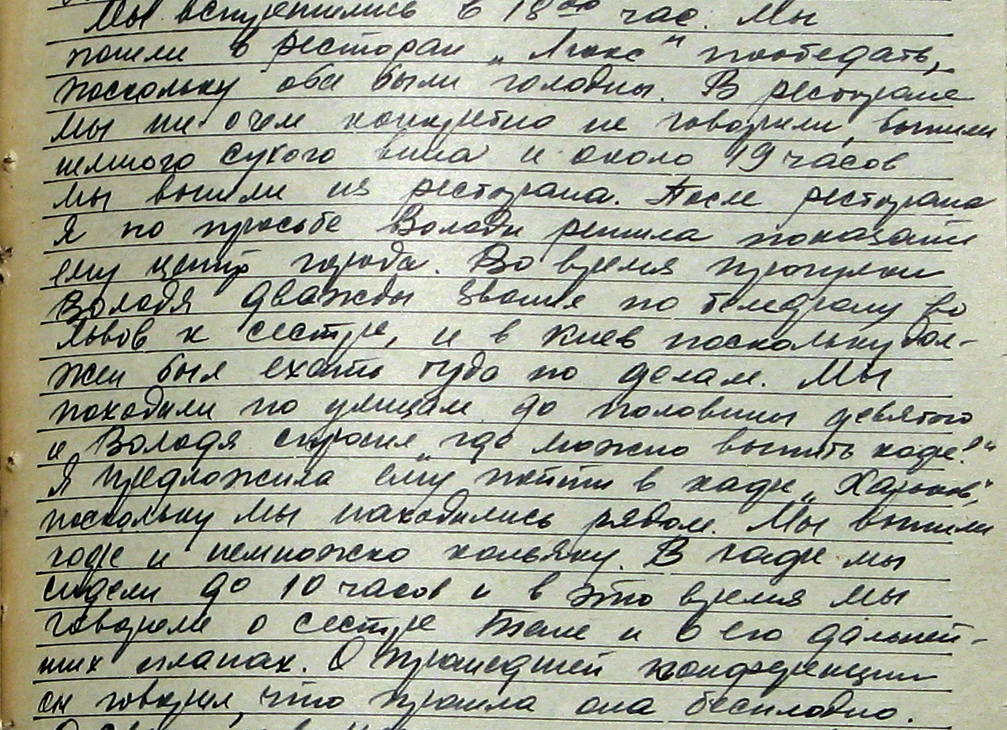 Мы встретились в 18⁰⁰ час. Мы
пошли в ресторан „Люкс" пообедать,
поскольку оба были голодны. В ресторане
мы ни о чем конкретно не говорили, выпили
немного сухого вина и около 19 часов
мы вышли из ресторана. После ресторана
я по просьбе Володи решила показать
ему центр города. Во время прогулки
Володя дважды звонил по телефону во
Львов к сестре, и в Киев поскольку дол-
жен был ехать туда по делам. Мы
походили по улицам до половины девятого
и Володя спросил „где можно выпить кофе?"
Я предложила ему пойти в кафе „Харьков",
поскольку мы находились рядом. Мы выпили
кофе и немножко коньяку. В кафе мы
сидели до 10 часов и в это время мы
говорили о сестре Тане и о его дальней-
ших планах. О прошедшей конференции
он говорил, что прошла она бесплодно.